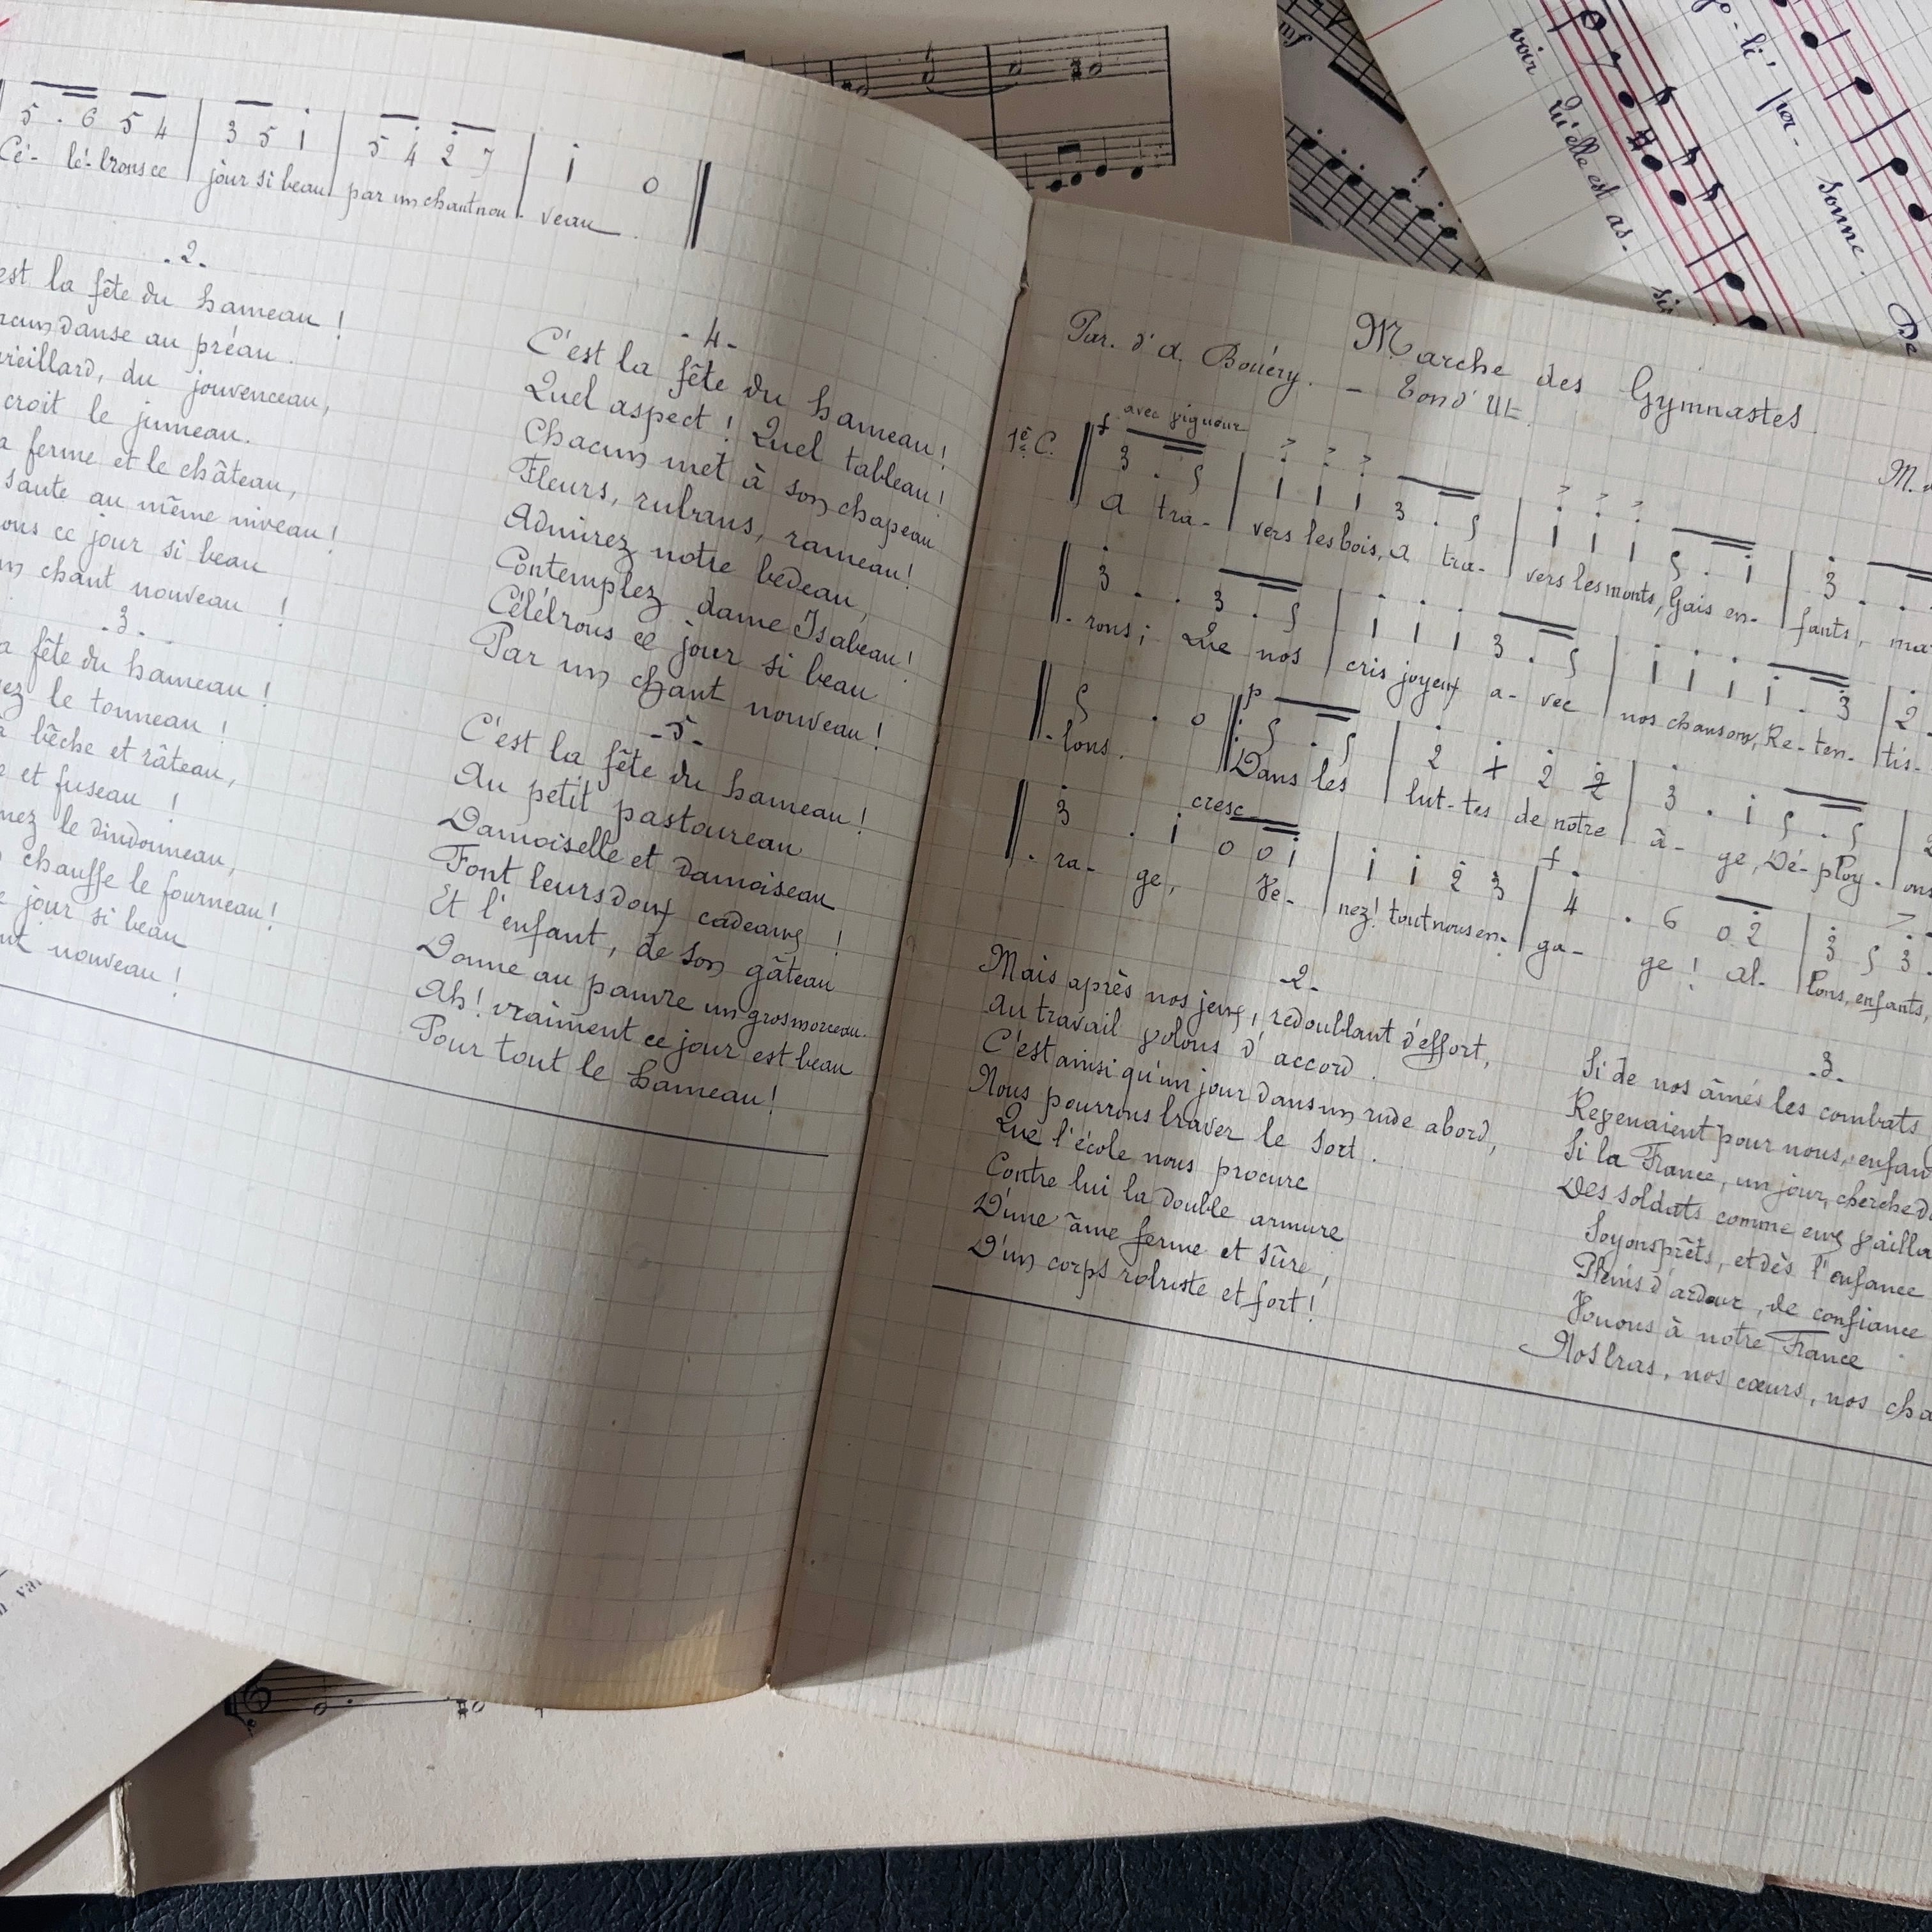 5 . 6 5 4 | 3 5 i | 5 4 2 7 | i 0
Cé- lé- brons ce | jour si beau | par un chant nou - veau .
- 2 -
est la fête du hameau !
danse au préau .
vieillard, du jouvenceau,
croit le jumeau .
la ferme et le château,
saute au même niveau !
ce jour si beau
un chant nouveau !
- 3 -
fête du hameau !
le tonneau !
bêche et râteau,
et fuseau !
le dindonneau,
chauffe le fourneau !
jour si beau
nouveau !
- 4 -
C'est la fête du hameau !
Quel aspect ! Quel tableau !
Chacun met à son chapeau
Fleurs, rubans, rameau !
Admirez notre bedeau,
Contemplez dame Isabeau !
Célébrons ce jour si beau
Par un chant nouveau !
- 5 -
C'est la fête du hameau !
Au petit pastoureau
Damoiselle et damoiseau
Font leurs doux cadeaux !
Et l'enfant, de son gâteau
Donne au pauvre un gros morceau.
Ah ! vraiment ce jour est beau
Pour tout le hameau !
Marche des Gymnastes .
Par. d'A. Bouéry . - Ton d'Ut .
M.
avec vigueur
1è C. f 3 . 5 | i i i 3 . 5 | i i i 5 . i | 3 .
A tra- | vers les bois, A tra- | vers les monts, Gais en- | fants,
3 . . 3 . 5 | i i i 3 . 5 | i i i i . 3 | 2 .
- rons ; Que nos | cris joyeux a - vec | nos chansons, Re - ten- | tis-
5 . 0 p 5 . 5 | 2 1 2 2 | 3 . i 5 . 5
- lons . Dans les | lut - tes de notre | â - ge, Dé - ploy - | ons
cresc
3 . i 0 0 i | i i 2 3 | f 4 . 6 0 2 | 3 5 3 .
- ra - ge, Ve- | nez ! tout nous en- | ga - ge ! Al- | lons, enfants,
- 2 -
Mais après nos jeux, redoublant d'effort,
Au travail volons d'accord .
C'est ainsi qu'un jour dans un rude abord,
Nous pourrons braver le sort .
Que l'école nous procure
Contre lui la double armure
D'une âme ferme et sûre,
D'un corps robuste et fort !
- 3 -
Si de nos aînés les combats
Revenaient pour nous,
Si la France, un jour, cherche
Des soldats comme eux
Soyons prêts, et dès l'enfance
Pleins d'ardeur, de confiance
Vouons à notre France
Nos bras, nos cœurs, nos
voir Qu'elle est as-
- li' per - sonne .